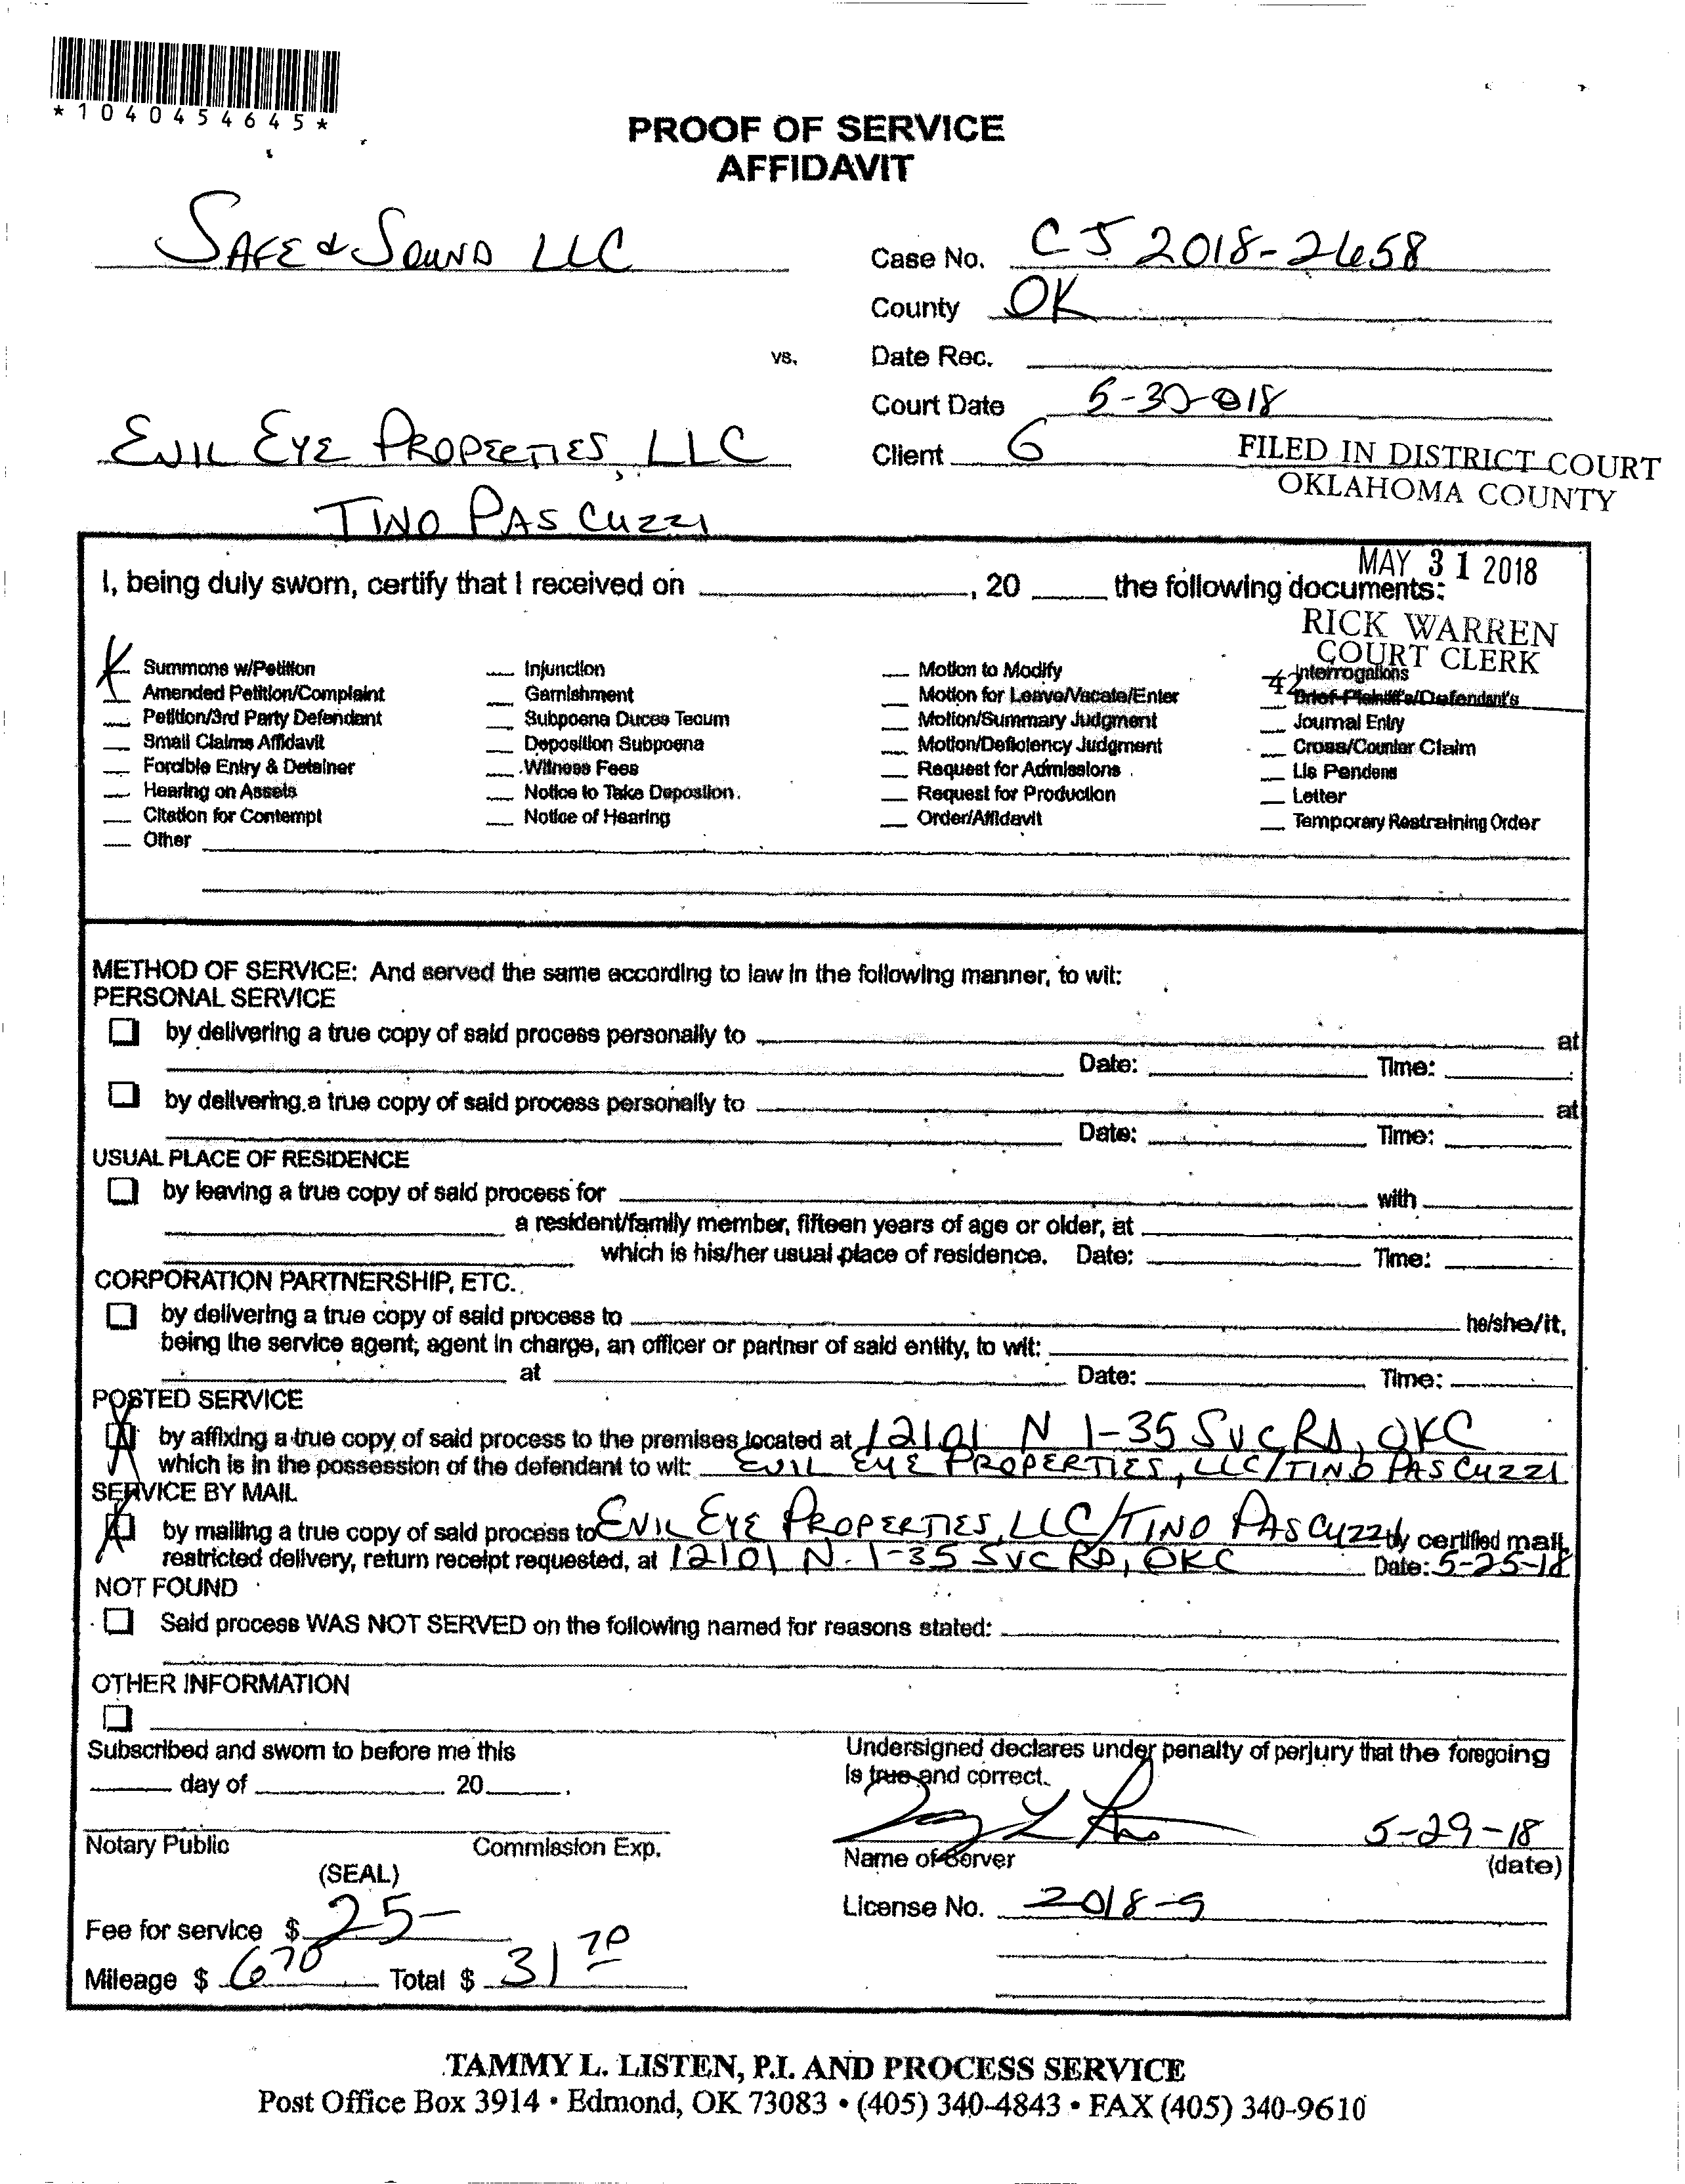 *1040454645*
PROOF OF SERVICE
AFFIDAVIT
SAFE & SOUND LLC
Case No. CJ 2018-2658
County OK
vs.
Date Rec.
Court Date 5-30-018
EVIL EYE PROPERTIES, LLC
Client 6
TINO PASCUZZI
FILED IN DISTRICT COURT
OKLAHOMA COUNTY
MAY 31 2018
RICK WARREN
COURT CLERK
42
I, being duly sworn, certify that I received on , 20 the following documents:
X Summons w/Petition
Amended Petition/Complaint
Petition/3rd Party Defendant
Small Claims Affidavit
Forcible Entry & Detainer
Hearing on Assets
Citation for Contempt
Other
Injunction
Garnishment
Subpoena Duces Tecum
Deposition Subpoena
Witness Fees
Notice to Take Depostion.
Notice of Hearing
Motion to Modify
Motion for Leave/Vacate/Enter
Motion/Summary Judgment
Motion/Deficiency Judgment
Request for Admissions
Request for Production
Order/Affidavit
Interrogations
Brief-Plaintiff's/Defendant's
Journal Entry
Cross/Counter Claim
Lis Pendens
Letter
Temporary Restraining Order
METHOD OF SERVICE: And served the same according to law in the following manner, to wit:
PERSONAL SERVICE
by delivering a true copy of said process personally to at
Date: Time:
by delivering a true copy of said process personally to at
Date: Time:
USUAL PLACE OF RESIDENCE
by leaving a true copy of said process for with
a resident/family member, fifteen years of age or older, at
which is his/her usual place of residence. Date: Time:
CORPORATION PARTNERSHIP, ETC.
by delivering a true copy of said process to he/she/it,
being the service agent; agent in charge, an officer or partner of said entity, to wit:
at Date: Time:
POSTED SERVICE
X by affixing a true copy of said process to the premises located at 12101 N I-35 SVC RD, OKC
which is in the possession of the defendant to wit: EVIL EYE PROPERTIES, LLC/TINO PASCUZZI
SERVICE BY MAIL
X by mailing a true copy of said process to EVIL EYE PROPERTIES, LLC/TINO PASCUZZI by certified mail,
restricted delivery, return receipt requested, at 12101 N. I-35 SVC RD, OKC Date: 5-25-18
NOT FOUND
Said process WAS NOT SERVED on the following named for reasons stated:
OTHER INFORMATION
Subscribed and sworn to before me this
day of 20 .
Notary Public Commission Exp.
(SEAL)
Fee for service $ 25-
Mileage $ 6 70 Total $ 31 70
Undersigned declares under penalty of perjury that the foregoing
is true and correct.
5-29-18
Name of Server (date)
License No. 2018-9
TAMMY L. LISTEN, P.I. AND PROCESS SERVICE
Post Office Box 3914 • Edmond, OK 73083 • (405) 340-4843 • FAX (405) 340-9610